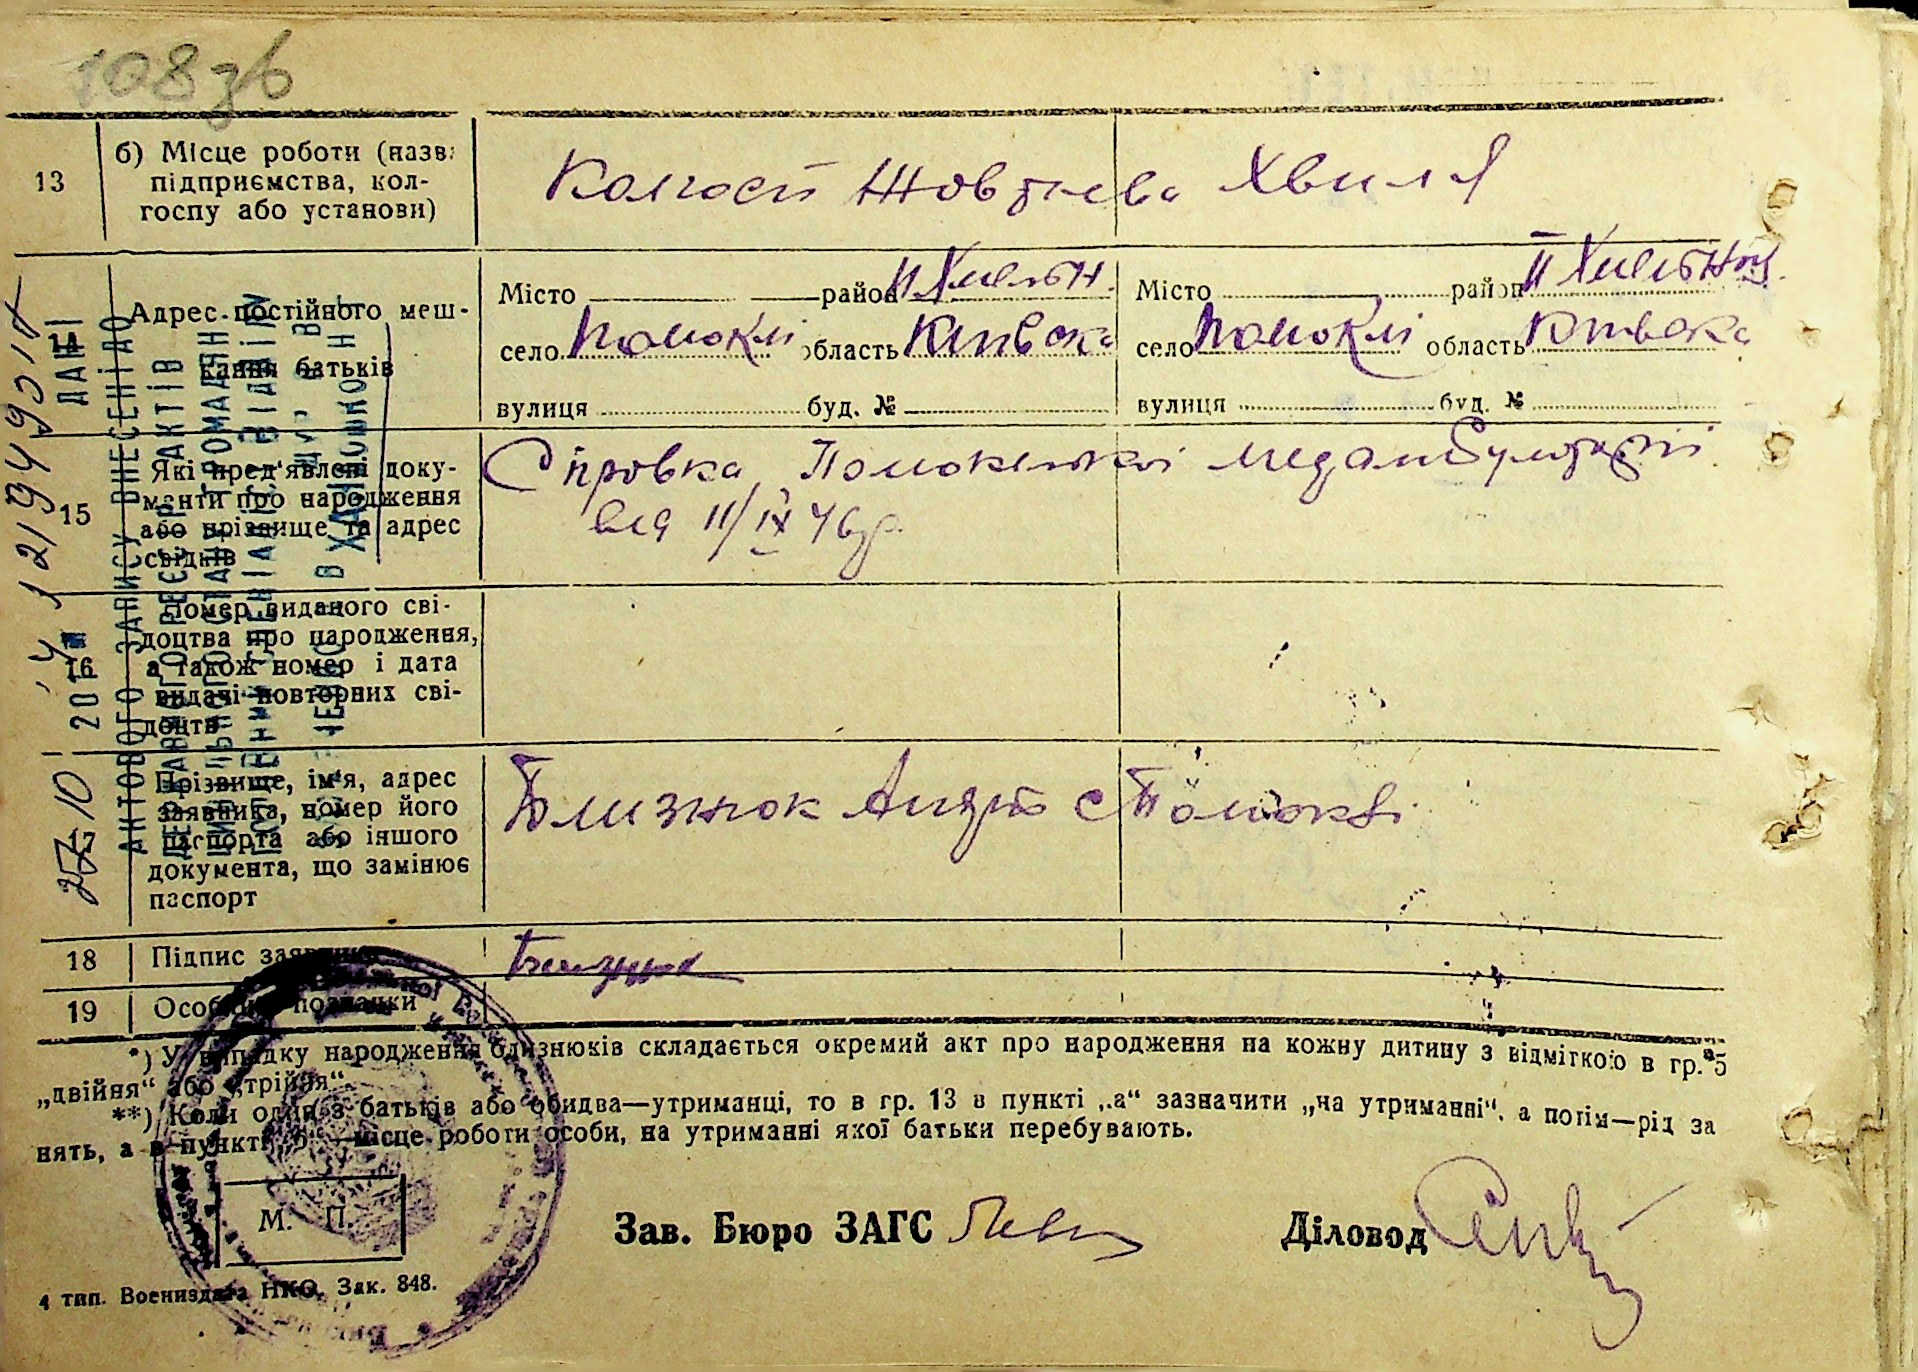 108 зв
13
б) Місце роботи (назва
підприємства, кол-
госпу або установи)
Колгосп Жовтнева Хвиля
14
Адрес постійного меш-
кання батьків
Місто район П Хмельн.
село Помоклі область Київська
вулиця буд. №
Місто район П Хмельниц.
село Помоклі область Київська
вулиця буд. №
15
Які пред'явлені доку-
менти про народження
або прізвище та адрес
свідків
Справка Помоклівської медамбулаторії
від 11/IX 46р.
16
Номер виданого сві-
доцтва про народження,
а також номер і дата
видачі повторних сві-
доцтв
17
Прізвище, ім'я, адрес
заявника, номер його
паспорта або іншого
документа, що замінює
паспорт
Близнюк Андрій с Помоклі
18
Підпис заявника
Близнюк
19
Особливі позначки
*) У випадку народження близнюків складається окремий акт про народження на кожну дитину з відміткою в гр. 5
„двійня“ або „трійня“.
**) Коли один з батьків або обидва—утриманці, то в гр. 13 в пункті „а“ зазначити „на утриманні“, а потім—рід за
нять, а в пункті „б“—місце роботи особи, на утриманні якої батьки перебувають.
М. П.
Зав. Бюро ЗАГС
Діловод
4 тип. Воениздата НКО, Зак. 848.
ДАНІ
АКТОВОГО ЗАПИСУ ВНЕСЕНІ ДО
ДЕРЖАВНОГО РЕЄСТРУ АКТІВ
ЦИВІЛЬНОГО СТАНУ ГРОМАДЯН